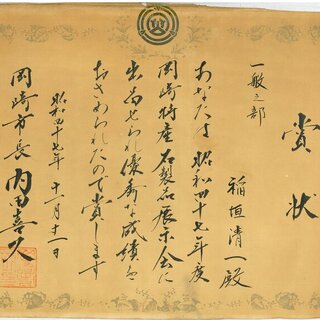 賞状
一般之部
稲垣清一殿
あなたは昭和四十七年度
岡崎特産石製品展示会に
出品せられ優秀な成績を
おさめられたので賞します
昭和四十七年十一月十一日
岡崎市長 内田喜久